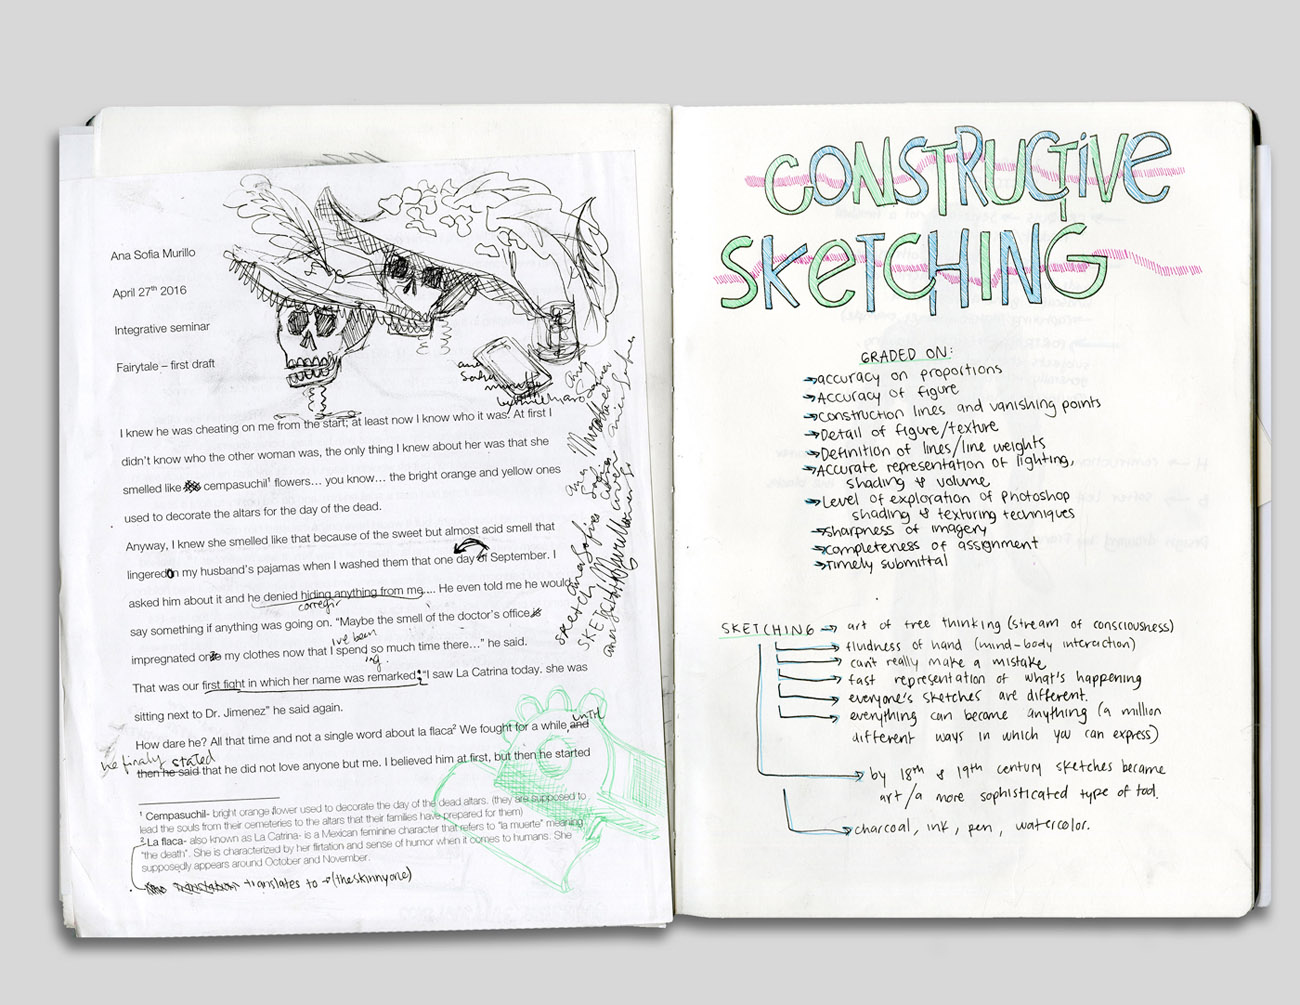 Ana Sofia Murillo
April 27th 2016
Integrative seminar
Fairytale – first draft
I knew he was cheating on me from the start; at least now I know who it was. At first I
didn't know who the other woman was, the only thing I knew about her was that she
smelled like cempasuchil¹ flowers… you know… the bright orange and yellow ones
used to decorate the altars for the day of the dead.
Anyway, I knew she smelled like that because of the sweet but almost acid smell that
lingered on my husband's pajamas when I washed them that one day of September. I
asked him about it and he denied hiding anything from me…. He even told me he would
corregir
say something if anything was going on. "Maybe the smell of the doctor's office
I've been
impregnated on my clothes now that I spend so much time there…" he said.
ing
That was our first fight in which her name was remarked: "I saw La Catrina today. she was
sitting next to Dr. Jimenez" he said again.
until
How dare he? All that time and not a single word about la flaca² We fought for a while and
he finaly stated
then he said that he did not love anyone but me. I believed him at first, but then he started
¹ Cempasuchil- bright orange flower used to decorate the day of the dead altars. (they are supposed to
lead the souls from their cemeteries to the altars that their families have prepared for them)
² La flaca- also known as La Catrina- is a Mexican feminine character that refers to "la muerte" meaning
"the death". She is characterized by her flirtation and sense of humor when it comes to humans. She
supposedly appears around October and November.
translates to → (theskinnyone)
ana
Sofia
murillo
sketch
SKETCH
CONSTRUCTIVE
SKETCHING
GRADED ON:
→ accuracy on proportions
→ Accuracy of figure
→ construction lines and vanishing points
→ Detail of figure/texture
→ Definition of lines/line weights
→ Accurate representation of lighting,
shading & volume
→ Level of exploration of Photoshop
shading & texturing techniques
→ sharpness of imagery
→ completeness of assignment
→ timely submittal
SKETCHING → art of free thinking (stream of consciousness)
→ fluidness of hand (mind-body interaction)
→ can't really make a mistake
→ fast representation of what's happening
→ everyone's sketches are different.
→ everything can become anything (a million
different ways in which you can express)
→ by 18th & 19th century sketches became
art/a more sophisticated type of tool.
→ charcoal, ink, pen, watercolor.